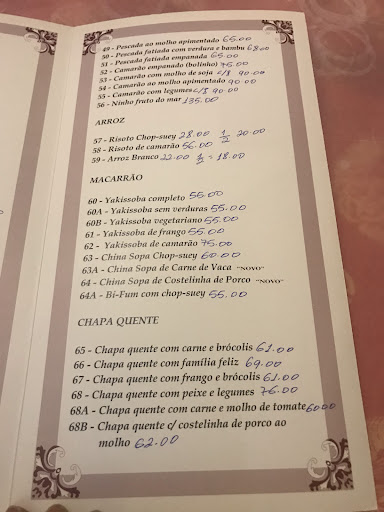 49 - Pescada ao molho apimentado 65.00
50 - Pescada fatiada com verdura e bambu 68.00
51 - Pescada fatiada empanada 65.00
52 - Camarão empanado (bolinho) 75.00
53 - Camarão com molho de soja c/8 90.00
54 - Camarão ao molho apimentado 90.00
55 - Camarão com legumes c/8 90.00
56 - Ninho fruto do mar 135.00
ARROZ
57 - Risoto Chop-suey 28.00 1/2 20.00
58 - Risoto de camarão 56.00
59 - Arroz Branco 22.00 1/2 = 18.00
MACARRÃO
60 - Yakissoba completo 55.00
60A - Yakissoba sem verduras 55.00
60B - Yakissoba vegetariano 55.00
61 - Yakissoba de frango 55.00
62 - Yakissoba de camarão 75.00
63 - China Sopa Chop-suey 60.00
63A - China Sopa de Carne de Vaca "NOVO"
64 - China Sopa de Costelinha de Porco "NOVO"
64A - Bi-Fum com chop-suey 55.00
CHAPA QUENTE
65 - Chapa quente com carne e brócolis 61.00
66 - Chapa quente com família feliz 69.00
67 - Chapa quente com frango e brócolis 61.00
68 - Chapa quente com peixe e legumes 76.00
68A - Chapa quente com carne e molho de tomate 60.00
68B - Chapa quente c/ costelinha de porco ao
molho 62.00